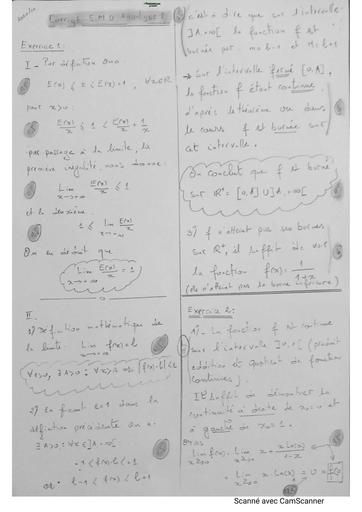 Corrigé E.M.D Analyse 1
Exercice 1 :
I - Par définition on a
E(x) ≤ x ≤ E(x)+1 , ∀x∈ℝ
pour x>0 :
E(x)/x ≤ 1 < E(x)/x + 1/x
par passage à la limite, la
première inégalité, nous donne :
Lim x→+∞ E(x)/x ≤ 1
et la deuxième
1 ≤ Lim x→+∞ E(x)/x
On en déduit que
Lim x→+∞ E(x)/x = 1
II.
1) Définition mathématique de
la limite : Lim f(x)=l
2) En fixant ε=1 dans la
définition précédente on a :
∃A>0 : ∀x∈]A,+∞[
-1 < f(x)-l < +1
l-1 < f(x) < l+1
c'est à dire que sur l'intervalle
]A,+∞[ la fonction f est
bornée par m=l-1 et M=l+1
→ Sur l'intervalle fermé [0,A],
la fonction f étant continue
d'après le théorème du
le cours f est bornée sur
cet intervalle.
On conclut que f est bornée
sur ℝ⁺=[0,A]∪]A,+∞[
3) f n'atteint pas ses bornes
sur ℝ⁺, il suffit de voir
la fonction f(x)= 1/(1+x)
(elle n'atteint pas la borne inférieure)
Exercice 2 :
1) - La fonction f est continue
sur l'intervalle ]0,1[ (produit
addition et quotient de fonctions
continues).
Il suffit de démontrer la
continuité à droite de x=0 et
à gauche de x=1.
Lim f(x) = Lim x + x Ln(x)/(1-x)
Scanné avec CamScanner